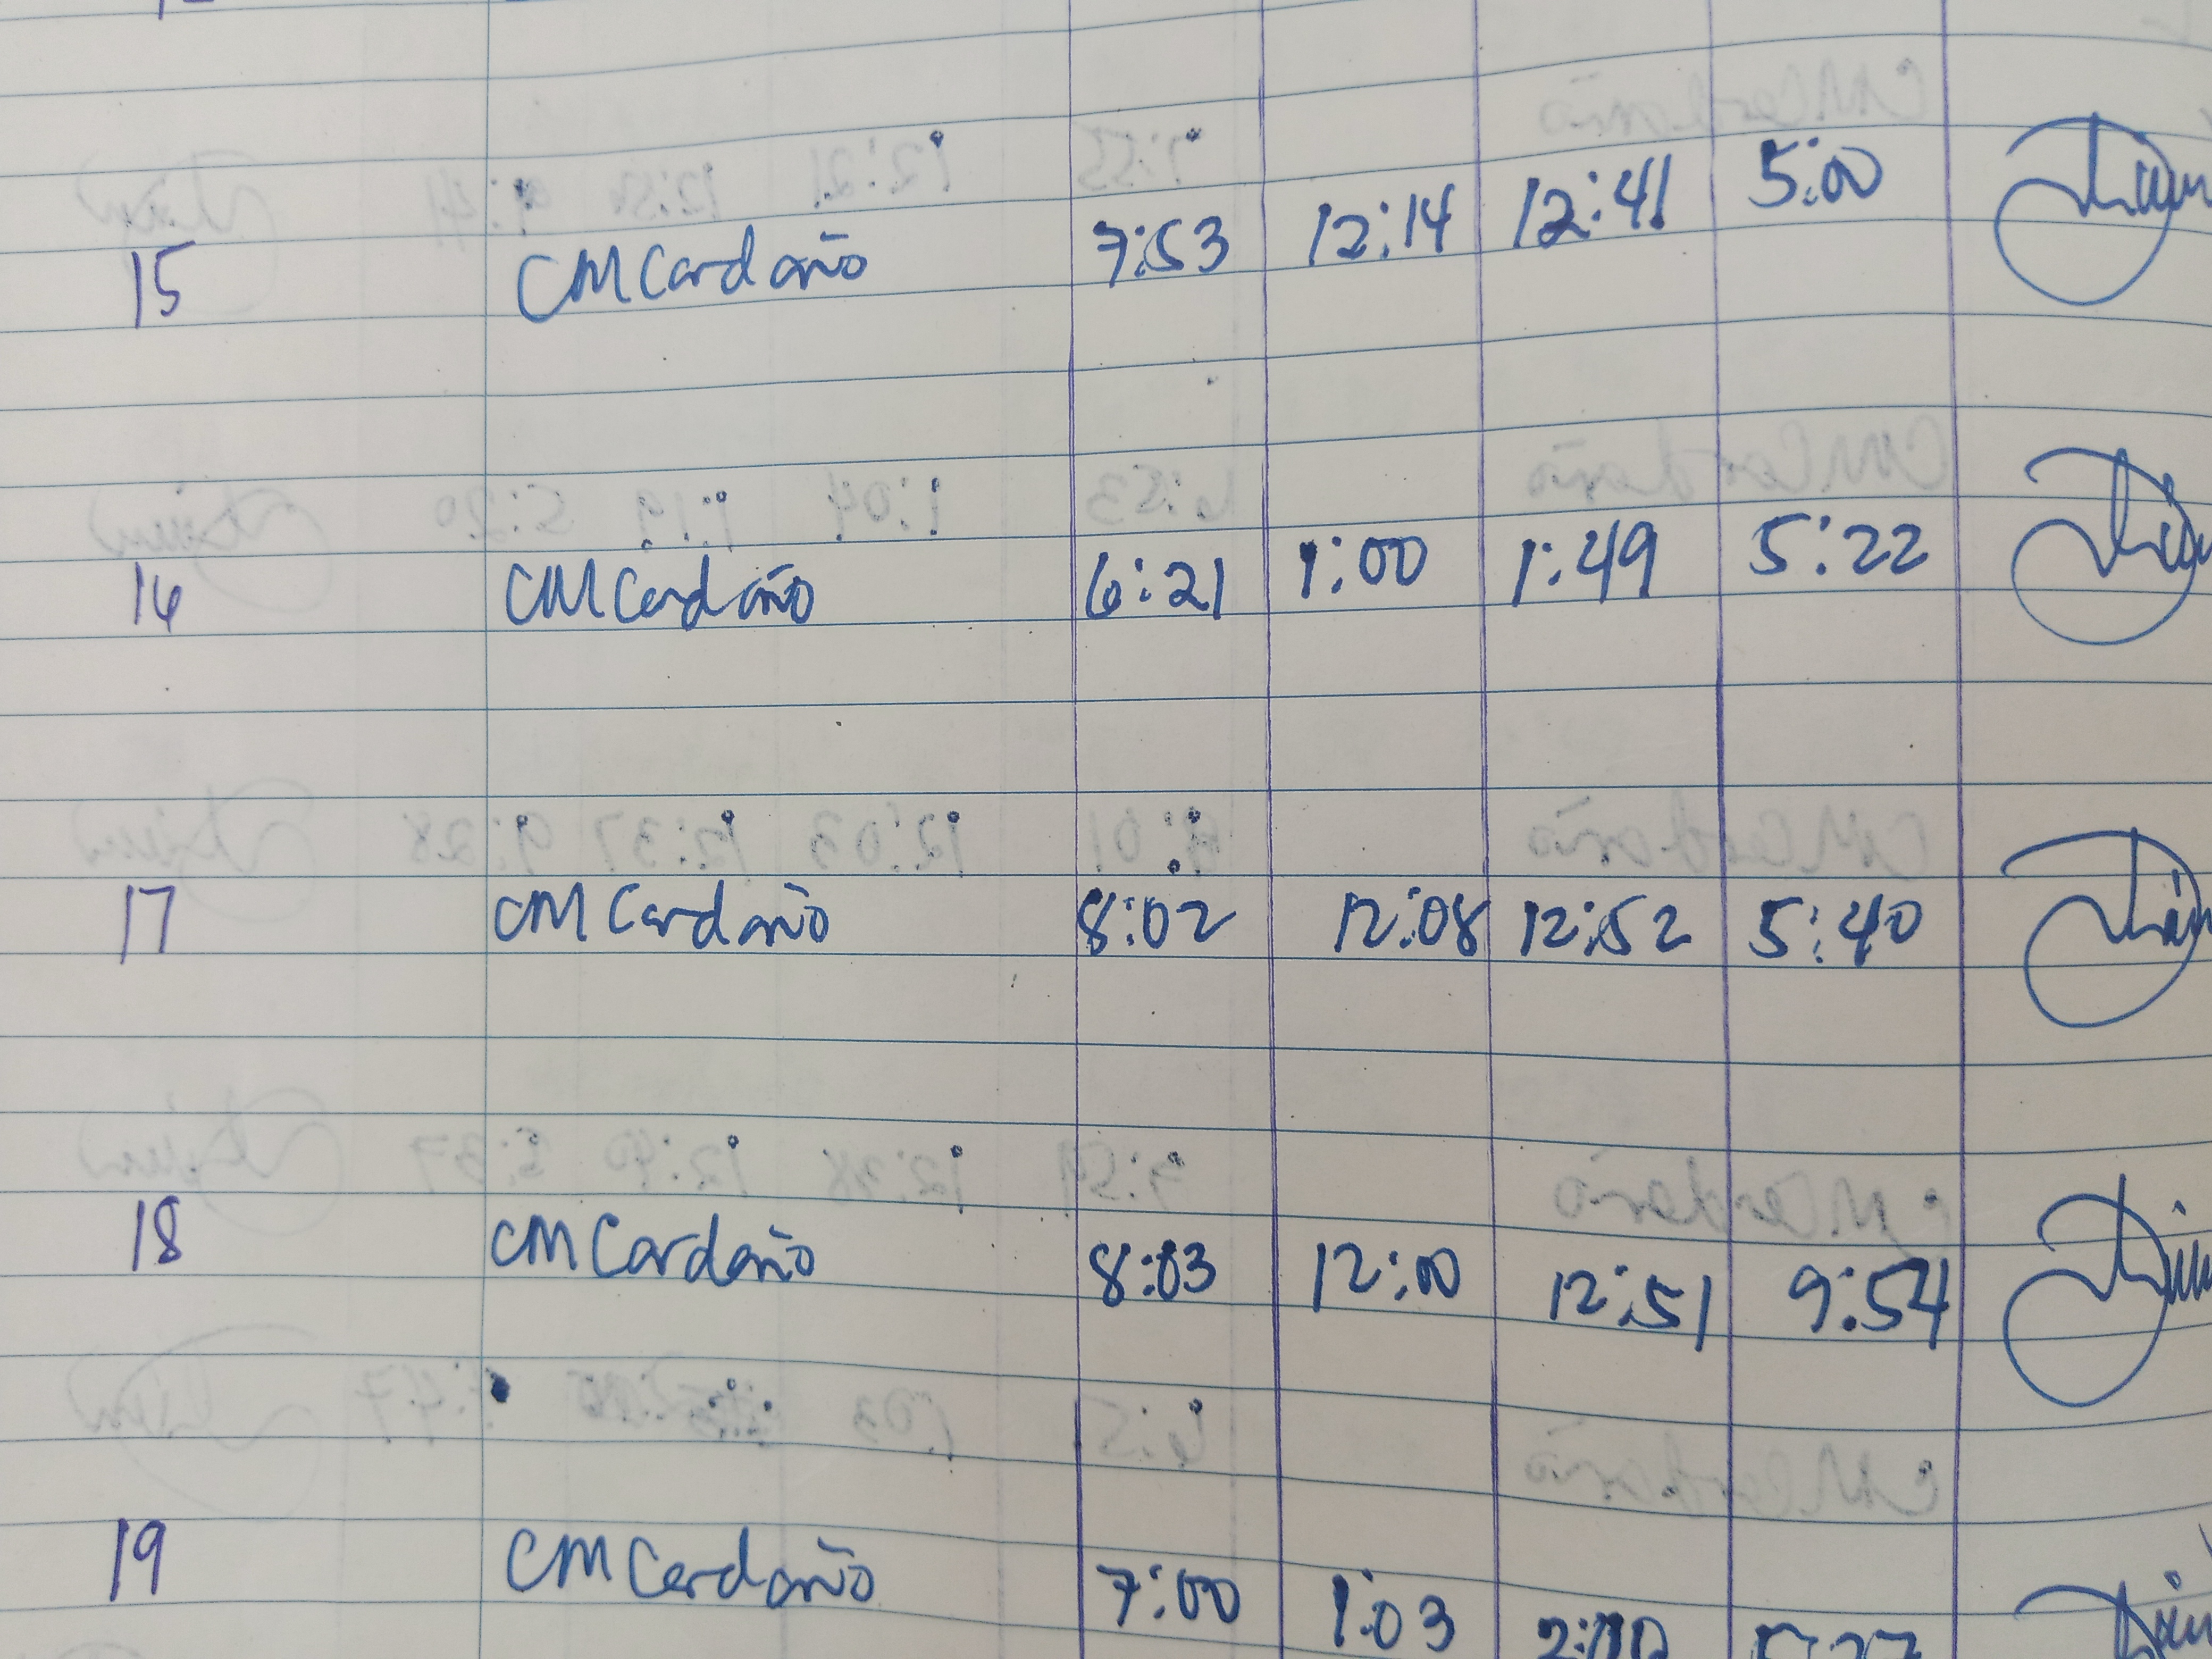 15 CMCardaño 7:53 12:14 12:41 5:00
16 CMCardaño 6:21 1:00 1:49 5:22
17 CMCardaño 8:02 12:08 12:52 5:40
18 CMCardaño 8:03 12:00 12:51 9:54
19 CMCardaño 7:00 1:03